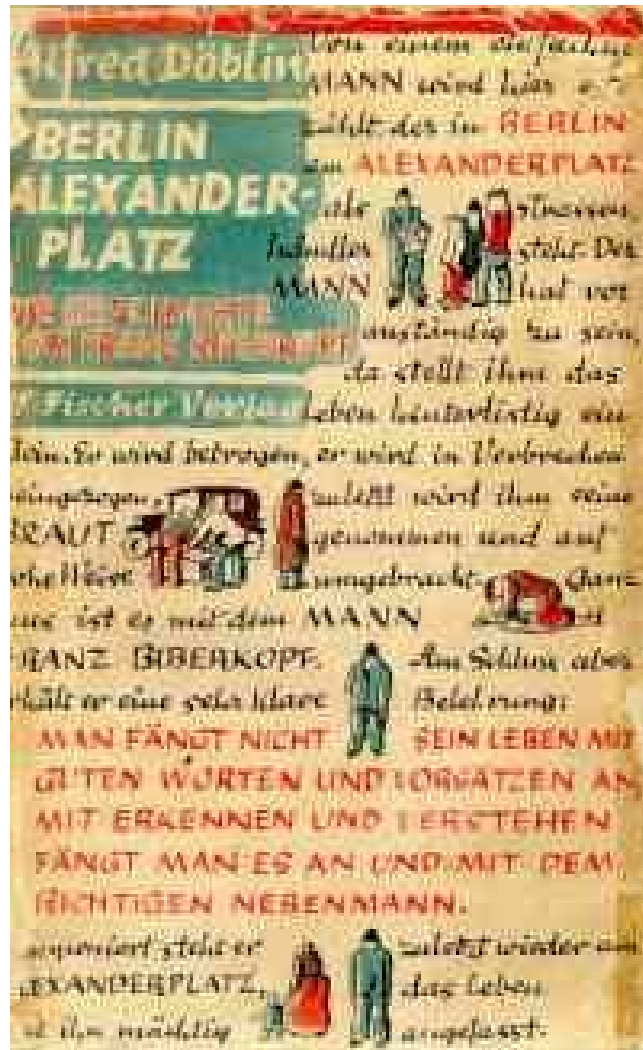 Alfred Döblin
BERLIN
ALEXANDER-
PLATZ
S. Fischer Verlag
Von einem einfachen
MANN wird hier er-
zählt, der in BERLIN
am ALEXANDERPLATZ
als Strassen
steht. Der
MANN hat vor
anständig zu sein,
da stellt ihm das
Leben hinterlistig ein
Bein. Er wird betrogen, er wird in Verbrechen
eingezogen, zuletzt wird ihm seine
BRAUT genommen und auf
rohe Weise umgebracht. Ganz
aus ist es mit dem MANN
FRANZ BIBERKOPF. Am Schluss aber
erhält er eine sehr klare Belehrung:
MAN FÄNGT NICHT SEIN LEBEN MIT
GUTEN WORTEN UND VORSÄTZEN AN
MIT ERKENNEN UND VERSTEHEN
FÄNGT MAN ES AN UND MIT DEM
RICHTIGEN NEBENMANN.
steht er zuletzt wieder am
ALEXANDERPLATZ, das Leben
ihn mächtig angefasst.